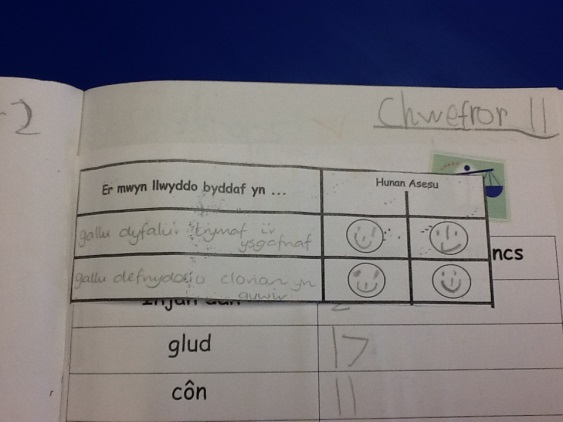 -2
Chwefror 11
Er mwyn llwyddo byddaf yn ...
Hunan Asesu
gallu dyfalu'r trymaf i'r
ysgafnaf
gallu defnyddio clorian yn
gywir
ncs
glud
17
côn
11